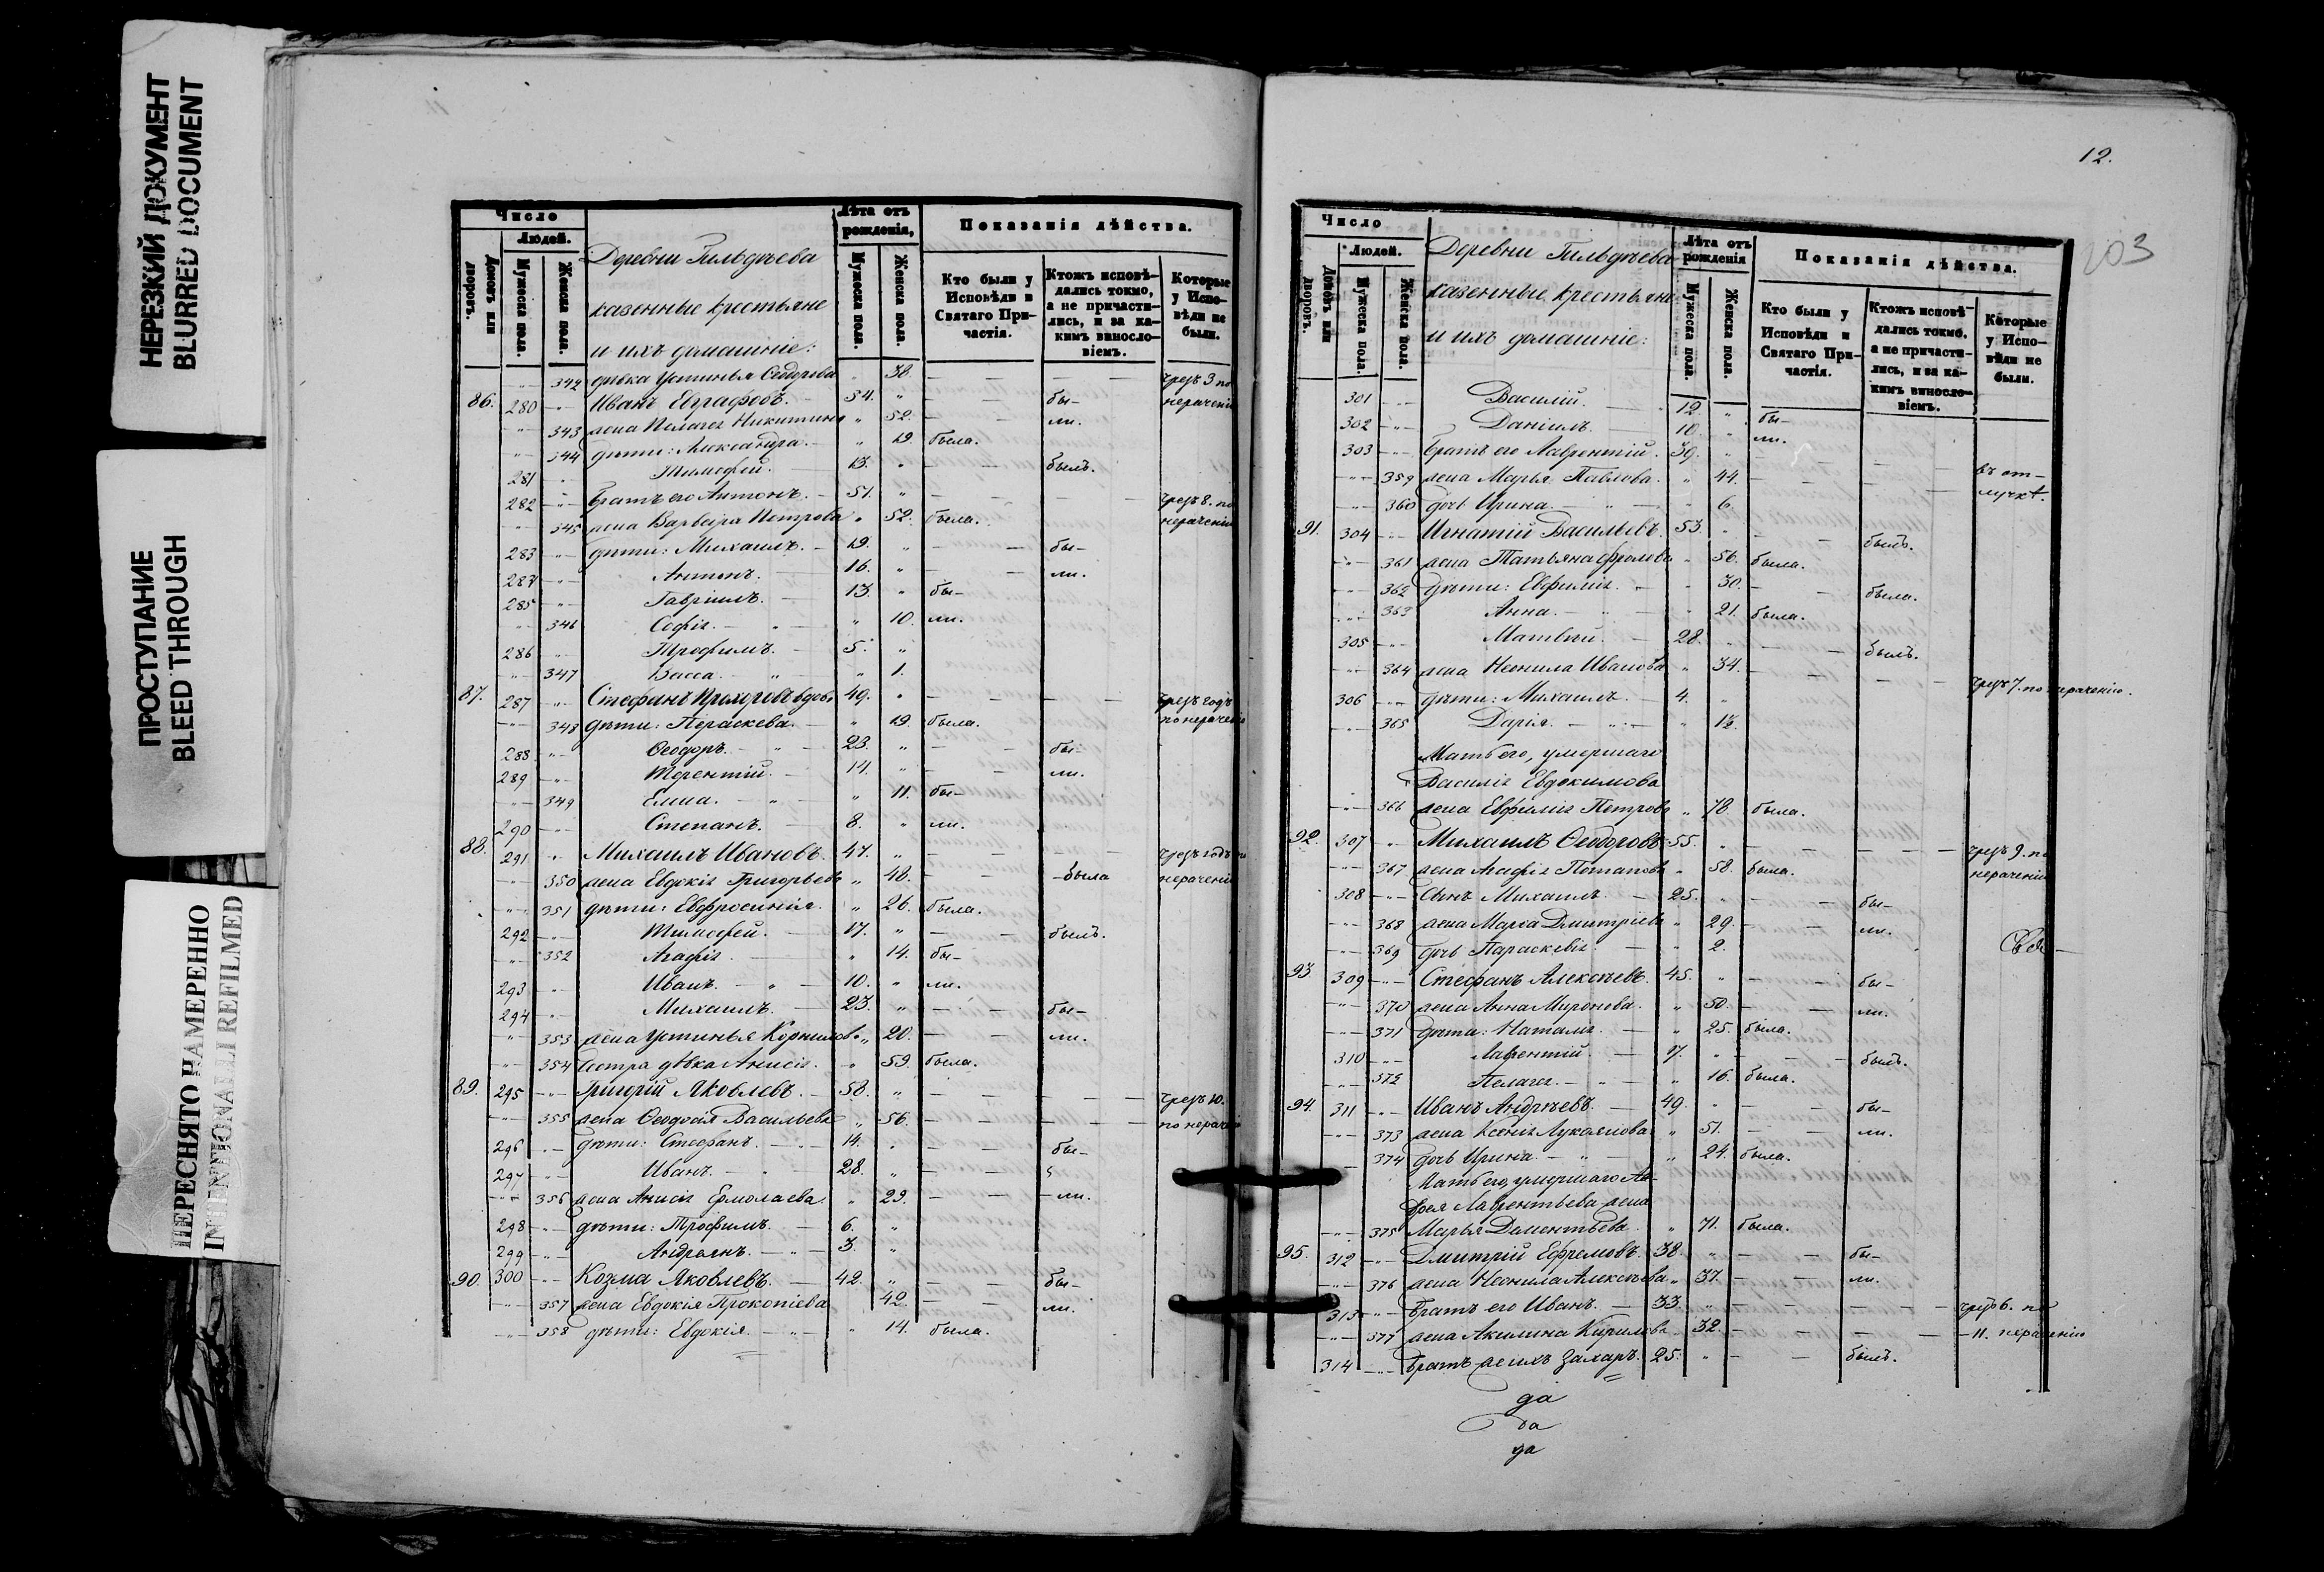 НЕРЕЗКИЙ ДОКУМЕНТ
BLURRED DOCUMENT
ПРОСТУПАНИЕ
BLEED THROUGH
ПЕРЕСНЯТО НАМЕРЕННО
INTENTIONALLI REFILMED
Число
Людей.
Домовъ или дворовъ.
Мужеска пола.
Женска пола.
Деревни Гильдѣева
казенные крестьяне
и ихъ домашніе:
Лѣта отъ рожденія,
Мужеска пола.
Женска пола.
Показанія дѣйства.
Кто были у Исповѣди и Святаго Причастія.
Ктожъ исповѣдались токмо, а не причастились, и за какимъ винословіемъ.
Которые у Исповѣди не были.
" 342 дѣвка Устинья Ѳеодорова " 38. — — чрезъ 3. по
86. 280 " Иванъ Евграфовъ. 54. " — — бы- нераченію
" 343 жена Пелагея Никитина " 52. — — ли.
" 344 дѣти: Александра. " 19. была.
281 " Тимофей. 13. " — — былъ.
282 " братъ его Антонъ. 51. " — — чрезъ 8. по
" 345 жена Варвара Петрова " 52. была. нераченію
283 " дѣти: Михаилъ. 19. " — — бы-
284 " Антонъ. 16. " — — ли.
285 " Гавріилъ. 13. " бы-
" 346 Софія. " 10. ли.
286 " Трофимъ. 5. "
" 347 Васса. " 1.
87. 287 " Стефанъ Прохоровъ вдовъ 49. " — — чрезъ годъ
" 348 дѣти: Пераскева. " 19. была. по нераченію
288 " Ѳеодоръ. 23. " — — бы-
289 " Терентій. 14. " — — ли.
" 349 Елена. " 11. бы-
290 " Степанъ. 8. " ли.
88. 291 " Михаилъ Ивановъ. 47. " — — чрезъ годъ по
" 350 жена Евдокія Григорьева " 48. — — была нераченію
" 351 дѣти: Евфросинія. " 26. была.
292 " Тимофей. 17. " — — былъ.
" 352 Агафія. " 14. бы-
293 " Иванъ. 10. " ли.
294 " Михаилъ. 23. " — — бы-
" 353 жена Устинья Корнилова " 20. — — ли.
" 354 сестра дѣвка Анисія. " 59. была.
89. 295 " Григорій Яковлевъ. 58. " — — чрезъ 10.
" 355 жена Ѳеодосія Васильева " 56. — — по нераченію
296 " дѣти: Стефанъ. 14. " бы-
297 " Иванъ. 28. " — —
" 356 жена Анисія Ермолаева. " 29. — — ли.
298 " дѣти: Трофимъ. 6. "
299 " Андреянъ. 3. "
90. 300 " Козма Яковлевъ. 42. " — — бы-
" 357 жена Евдокія Прокопіева 42. — — ли.
" 358 дѣти: Евдокія. " 14. была.
12.
203
Число
Людей.
Домовъ или дворовъ.
Мужеска пола.
Женска пола.
Деревни Гильдѣева
казенные крестьяне
и ихъ домашніе:
Лѣта отъ рожденія
Мужеска пола.
Женска пола.
Показанія дѣйства.
Кто были у Исповѣди и Святаго Причастія.
Ктожъ исповѣдались токмо, а не причастились, и за какимъ винословіемъ.
Которые у Исповѣди не были.
301 " Василій. 12. " бы-
302 " Даніилъ. 10. " ли.
303 " братъ его Лаврентій. 39. " — — въ от-
" 359 жена Марья Павлова. " 44. — — лучкѣ.
" 360 дочь Ирина. " 6.
91. 304 " Игнатій Васильевъ. 53. " — — былъ.
" 361 жена Татьяна Фролова " 56. была.
" 362 дѣти: Евфимія. " 30. — — была.
" 363 Анна. " 21. была.
305 " Матвѣй. 28. " — — былъ.
" 364 жена Неонила Иванова " 34. — — чрезъ 7. по нераченію.
306 " дѣти: Михаилъ. 4. "
" 365 Дарія. "
Мать его, умершаго
Василія Евдокимова
" 366 жена Евфимія Петрова " 78. была.
92. 307 " Михаилъ Ѳеодоровъ 55. " — — чрезъ 9. по
" 367 жена Агафія Потапова " 58. была. нераченію
308 " Сынъ Михаилъ. 25. " — — бы-
" 368 жена Марѳа Дмитріева " 29. — — ли.
" 369 дочь Параскевія " 2.
93. 309 " Стефанъ Алексѣевъ. 45. " — — бы-
" 370 жена Анна Миронова. " 50. — — ли.
" 371 дѣти: Наталія. " 25. была.
310 " Лаврентій. " — — былъ.
" 372 Пелагея. " 16. была.
94. 311 " Иванъ Андрѣевъ. 49. " — — бы-
" 373 жена Ксенія Лукоянова. " 51. — — ли.
374 дочь Ирина. " 24. была.
Мать его, умершаго Ан-
дрея Лаврентьева жена
" 375 Марья Дементьева. " 71. была.
95. 312 " Дмитрій Ефремовъ. 38. " — — бы-
" 376 жена Неонила Алексѣева " 37. — — ли.
313 " братъ его Иванъ. 33. " — — чрезъ 6. по
" 377 жена Акилина Кирилова 32. — — 11. нераченію
314 " братъ же ихъ Захаръ. 25. " — — былъ.
да
да
да